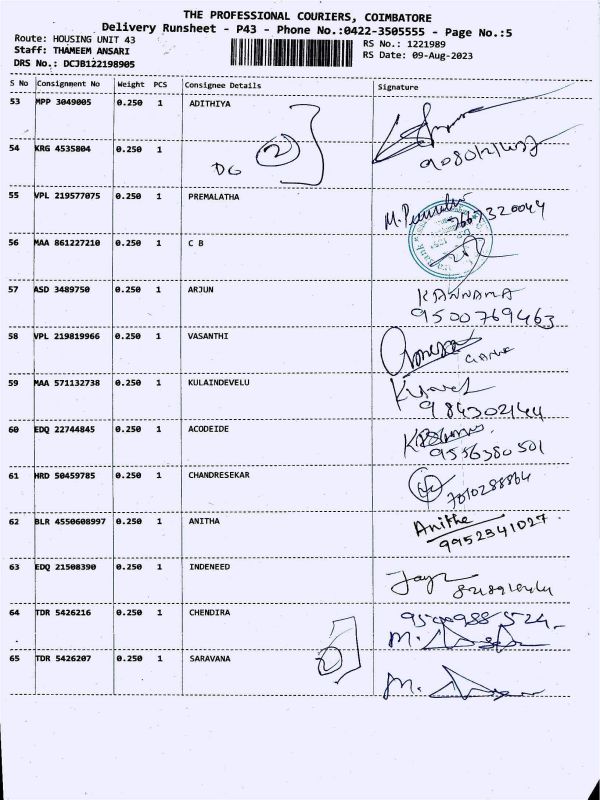 THE PROFESSIONAL COURIERS, COIMBATORE
Delivery Runsheet - P43 - Phone No.:0422-3505555 - Page No.:5
Route: HOUSING UNIT 43 RS No.: 1221989
Staff: THAMEEM ANSARI RS Date: 09-Aug-2023
DRS No.: DCJB122198905
S No Consignment No Weight PCS Consignee Details Signature
53 MPP 3049005 0.250 1 ADITHIYA
54 KRG 4535804 0.250 1 DG 2
55 VPL 219577075 0.250 1 PREMALATHA
56 MAA 861227210 0.250 1 C B
57 ASD 3489750 0.250 1 ARJUN KANNAMA
9500769463
58 VPL 219819966 0.250 1 VASANTHI
59 MAA 571132738 0.250 1 KULAINDEVELU
984302144
60 EDQ 22744845 0.250 1 ACODEIDE
9556380501
61 HRD 50459785 0.250 1 CHANDRESEKAR
7010288864
62 BLR 4550608997 0.250 1 ANITHA Anitha
9952341027
63 EDQ 21508390 0.250 1 INDENEED
64 TDR 5426216 0.250 1 CHENDIRA 9500988524
M.
65 TDR 5426207 0.250 1 SARAVANA 2 M.